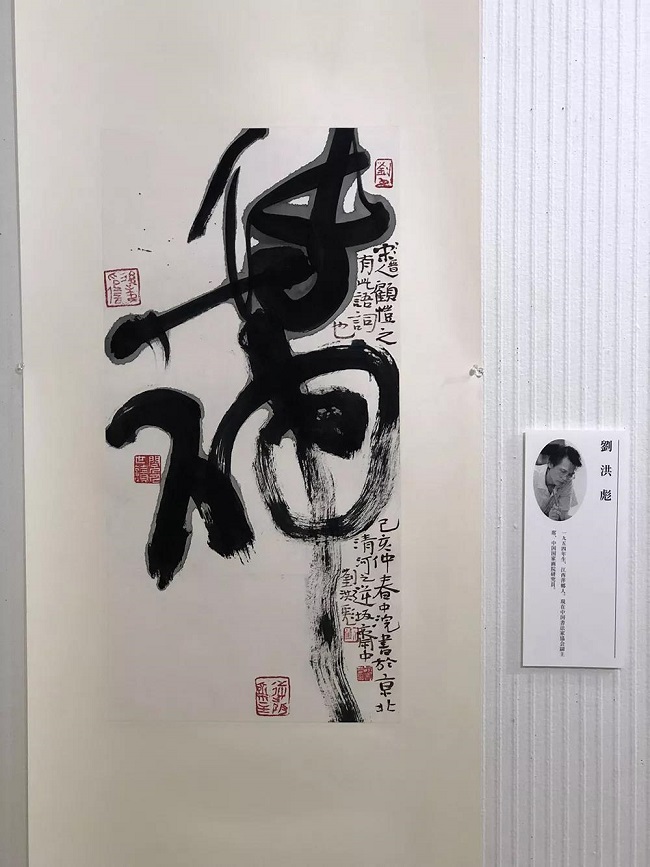 傳神
顧愷之
有此語詞
也
己亥仲春中浣書於京北
清河之逆坂齋中
劉洪彪
劉洪彪
一九五四年生，江西萍鄉人。現任中国書法家協会副主
席、中国国家画院研究員。